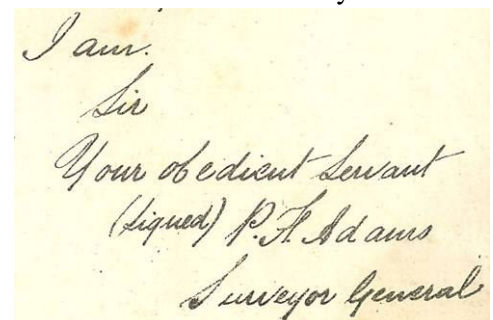 I am.
Sir
Your obedient Servant
(signed) P. F. Adams
Surveyor General